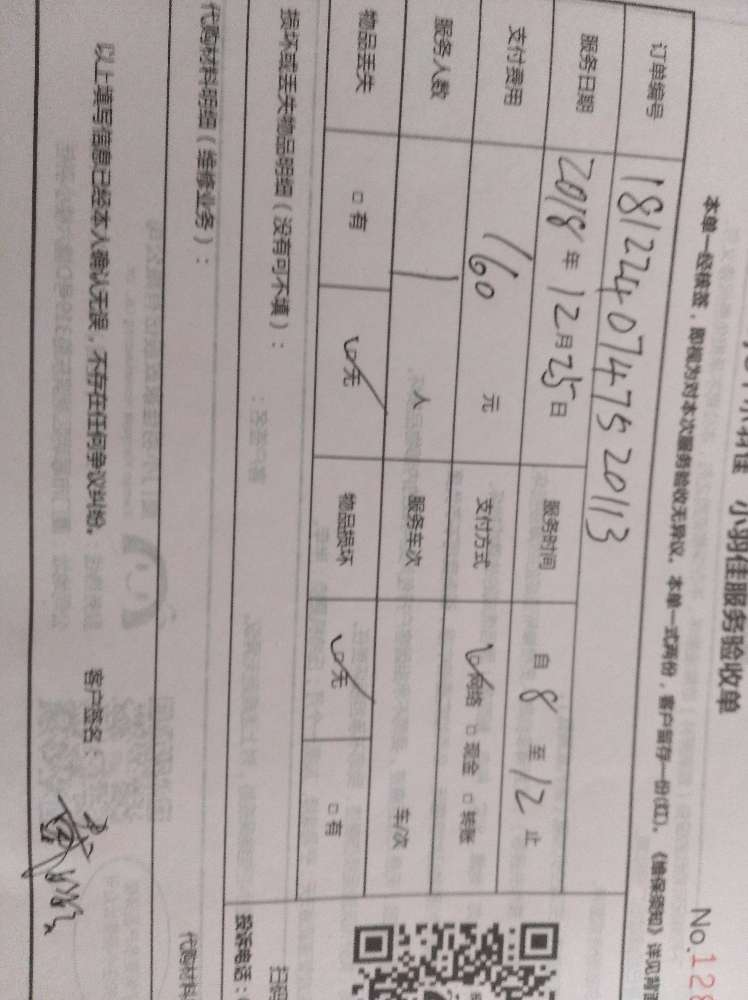 小羽佳服务验收单
No.128
本单一经核签，即视为对本次服务验收无异议。本单一式两份，客户留存一份(红)。《维保须知》详见背面
订单编号 18122407475 20113
服务日期 2018年12月25日 服务时间 自8至12止
支付费用 160 元 支付方式 ☑网络 □现金 □转账
服务人数 1 人 服务车次 车/次
物品丢失 □有 ☑无 物品损坏 ☑无 □有
损坏或丢失物品明细（没有可不填）：
代购材料明细（维修业务）：
代购材料
以上填写信息已经本人确认无误，不存在任何争议纠纷。 客户签名：
扫码
投诉电话：